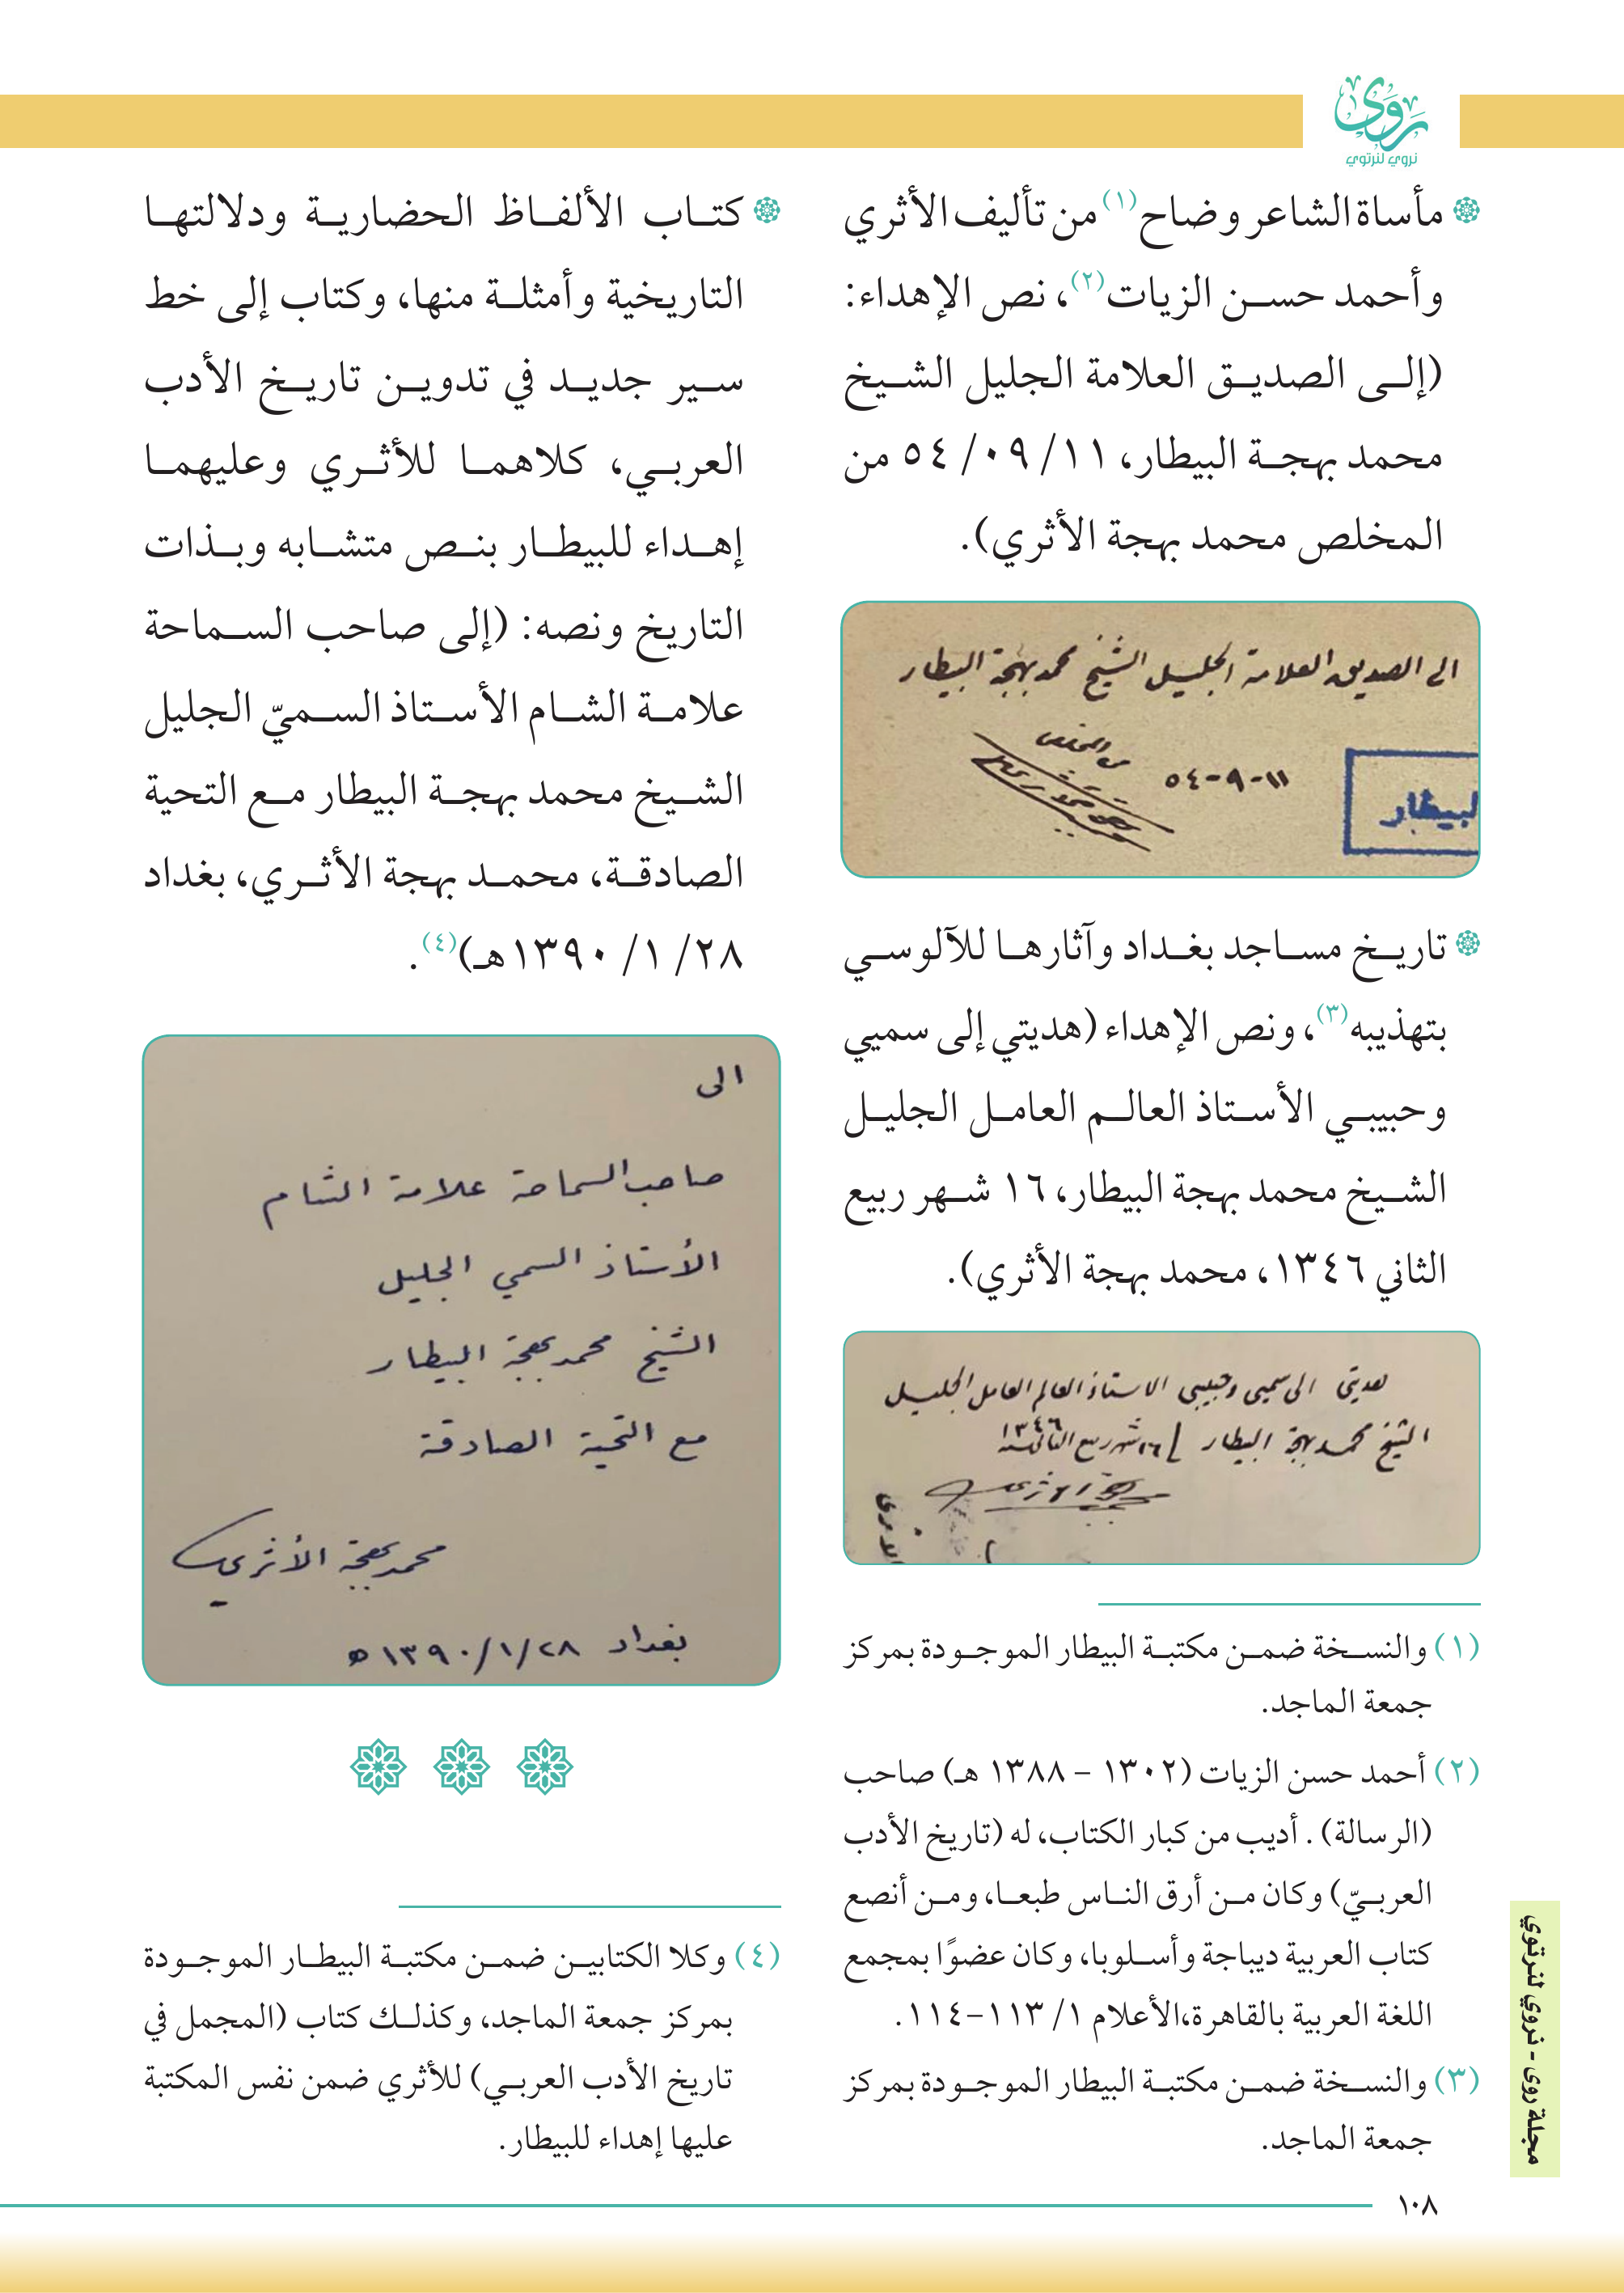 روى
نروي لنرتوي
مأساة الشاعر وضاح(١) من تأليف الأثري
وأحمد حسن الزيات(٢)، نص الإهداء:
(إلى الصديق العلامة الجليل الشيخ
محمد بهجة البيطار، ١١/ ٠٩/ ٥٤ من
المخلص محمد بهجة الأثري).
الى الصديق العلامة الجليل الشيخ محمد بهجة البيطار
١١-٩-٥٤
من المخلص
محمد بهجة الأثري
لبيطار
تاريخ مساجد بغداد وآثارها للآلوسي
بتهذيبه(٣)، ونص الإهداء (هديتي إلى سميي
وحبيبي الأستاذ العالم العامل الجليل
الشيخ محمد بهجة البيطار، ١٦ شهر ربيع
الثاني ١٣٤٦، محمد بهجة الأثري).
هديتي الى سميي وحبيبي الاستاذ العالم العامل الجليل
الشيخ محمد بهجة البيطار / ١٦ شهر ربيع الثاني سنة ١٣٤٦
بهجة الاثري
الاثري
(١) والنسخة ضمن مكتبة البيطار الموجودة بمركز
جمعة الماجد.
(٢) أحمد حسن الزيات (١٣٠٢ – ١٣٨٨ هـ) صاحب
(الرسالة) . أديب من كبار الكتاب، له (تاريخ الأدب
العربيّ) وكان من أرق الناس طبعا، ومن أنصع
كتاب العربية ديباجة وأسلوبا، وكان عضوًا بمجمع
اللغة العربية بالقاهرة،الأعلام ١/ ١١٣-١١٤.
(٣) والنسخة ضمن مكتبة البيطار الموجودة بمركز
جمعة الماجد.
كتاب الألفاظ الحضارية ودلالتها
التاريخية وأمثلة منها، وكتاب إلى خط
سير جديد في تدوين تاريخ الأدب
العربي، كلاهما للأثري وعليهما
إهداء للبيطار بنص متشابه وبذات
التاريخ ونصه: (إلى صاحب السماحة
علامة الشام الأستاذ السميّ الجليل
الشيخ محمد بهجة البيطار مع التحية
الصادقة، محمد بهجة الأثري، بغداد
٢٨/ ١/ ١٣٩٠هـ)(٤).
الى
صاحب السماحة علامة الشام
الأستاذ السمي الجليل
الشيخ محمد بهجة البيطار
مع التحية الصادقة
محمد بهجة الأثري
بغداد ٢٨/١/١٣٩٠ ه
(٤) وكلا الكتابين ضمن مكتبة البيطار الموجودة
بمركز جمعة الماجد، وكذلك كتاب (المجمل في
تاريخ الأدب العربي) للأثري ضمن نفس المكتبة
عليها إهداء للبيطار.
مجلة روى - نروي لنرتوي
١٠٨